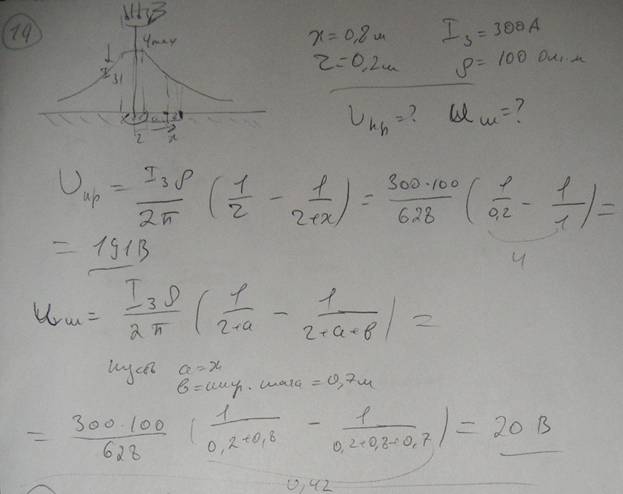 19
φmax
x = 0,8 м   I з = 300 А
r = 0,2 м   ρ = 100 Ом.м
Uпр = ?   Uш = ?
Uпр = Iз ρ / 2π ( 1/r − 1/(r+x) ) = 300·100 / 628 ( 1/0,2 − 1/1 ) =
4
= 191 В
Uш = Iз ρ / 2π ( 1/(r+a) − 1/(r+a+в) ) =
пусть a = x
в = шир. шага = 0,7 м
= 300·100 / 628 ( 1/(0,2+0,8) − 1/(0,2+0,8+0,7) ) = 20 В
0,42